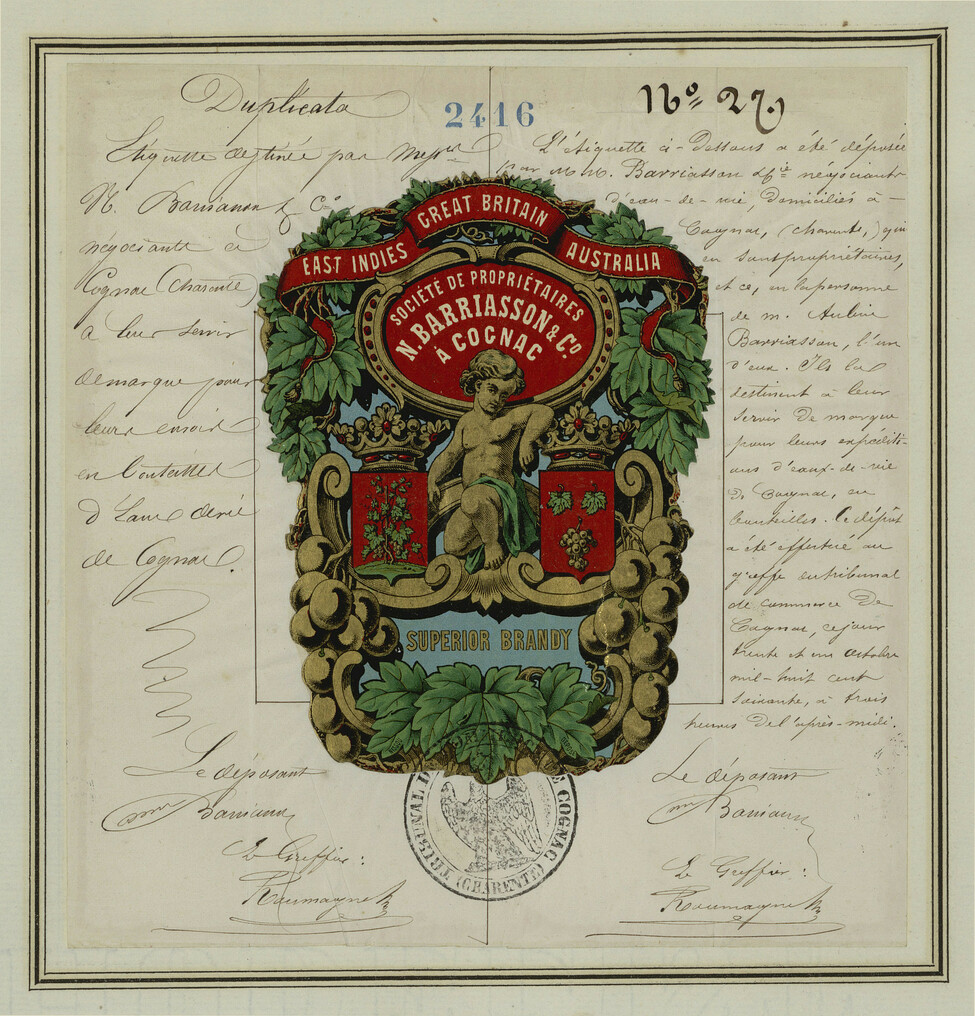 Duplicata
2416
No 27.
Etiquette destinée par Messrs
N. Barriasson & Co
négociants à
Cognac (Charente)
à leur servir
de marque pour
leurs envois
en bouteilles
d'Eaux de vie
de Cognac.
Le déposant
Barriasson
Le Greffier:
L'étiquette ci-dessous a été déposée
par M.M. Barriasson & Cie négociants
d'eau-de-vie, domiciliés à
Cognac, (charente,) qui
en sont propriétaires,
et ce, en la personne
de m.
Barriasson, l'un
d'eux. Ils la
destinent à leur
servir de marque
pour leurs expéditi-
ons d'eaux-de-vie
de Cognac, en
bouteilles. Ce dépôt
a été effectué au
greffe du tribunal
de commerce de
Cognac, ce jour
trente et un octobre
mil-huit cent
soixante, à trois
heures de l'après-midi.
Le déposant
Barriasson
Le Greffier:
EAST INDIES
GREAT BRITAIN
AUSTRALIA
SOCIÉTÉ DE PROPRIÉTAIRES
N. BARRIASSON & CO
A COGNAC
SUPERIOR BRANDY
TRIBUNAL DE COGNAC
(CHARENTE)